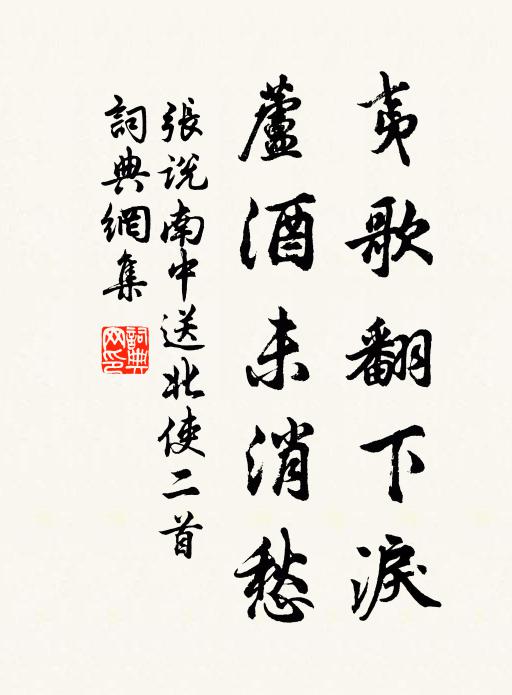 夷歌翻下淚
蘆酒未消愁
張說南中送北使二首
詞典網集
詞典網印